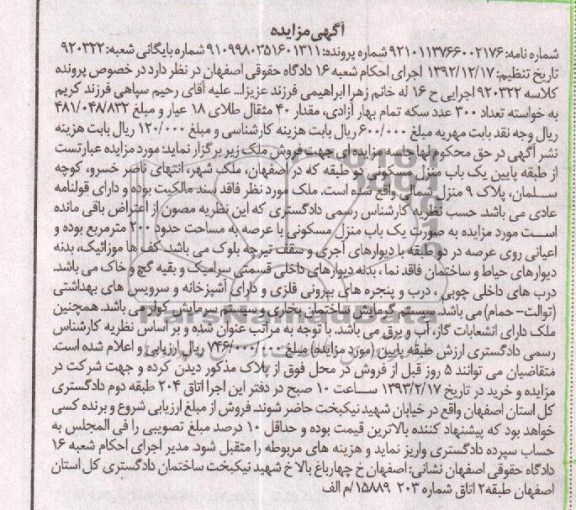 آگهی مزایده
شماره نامه: ۹۲۱۰۱۱۳۷۶۶۰۰۲۱۷۶ شماره پرونده: ۹۱۰۹۹۸۰۳۵۱۶۰۱۳۱۱ شماره بایگانی شعبه: ۹۲۰۳۲۲
تاریخ تنظیم: ۱۳۹۲/۱۲/۱۷ اجرای احکام شعبه ۱۶ دادگاه حقوقی اصفهان در نظر دارد در خصوص پرونده
کلاسه ۹۲۰۳۲۲ اجرایی ح ۱۶ له خانم زهرا ابراهیمی فرزند عزیزا... علیه آقای رحیم سپاهی فرزند کریم
به خواسته تعداد ۳۰۰ عدد سکه تمام بهار آزادی، مقدار ۴۰ مثقال طلای ۱۸ عیار و مبلغ ۴۸۱/۰۴۸/۸۳۲
ریال وجه نقد بابت مهریه مبلغ ۶۰۰/۰۰۰ ریال بابت هزینه کارشناسی و مبلغ ۱۲۰/۰۰۰ ریال بابت هزینه
نشر آگهی در حق محکوم لها جلسه مزایده ای جهت فروش ملک زیر برگزار نماید: مورد مزایده عبارتست
از طبقه پایین یک باب منزل مسکونی دو طبقه که در اصفهان، ملک شهر، انتهای ناصر خسرو، کوچه
سلمان، پلاک ۹ منزل شمالی واقع شده است. ملک مورد نظر فاقد سند مالکیت بوده و دارای قولنامه
عادی می باشد. حسب نظریه کارشناس رسمی دادگستری که این نظریه مصون از اعتراض باقی مانده
است مورد مزایده به صورت یک باب منزل مسکونی با عرصه به مساحت حدود ۲۰۰ مترمربع بوده و
اعیانی روی عرصه در دو طبقه با دیوارهای آجری و سقف تیرچه بلوک می باشد. کف ها موزائیک، بدنه
دیوارهای حیاط و ساختمان فاقد نما، بدنه دیوارهای داخلی قسمتی سرامیک و بقیه گچ و خاک می باشد.
درب های داخلی چوبی، درب و پنجره های بیرونی فلزی و دارای آشپزخانه و سرویس های بهداشتی
(توالت- حمام) می باشد. سیستم گرمایش ساختمان بخاری و سیستم سرمایش کولر می باشد. همچنین
ملک دارای انشعابات گاز، آب و برق می باشد. با توجه به مراتب عنوان شده و بر اساس نظریه کارشناس
رسمی دادگستری ارزش طبقه پایین (مورد مزایده) مبلغ ۷۴۶/۰۰۰/۰۰۰ ریال ارزیابی و اعلام شده است.
متقاضیان می توانند ۵ روز قبل از فروش در محل فوق از پلاک مذکور دیدن کرده و جهت شرکت در
مزایده و خرید در تاریخ ۱۳۹۳/۲/۱۷ ساعت ۱۰ صبح در دفتر این اجرا اتاق ۲۰۴ طبقه دوم دادگستری
کل استان اصفهان واقع در خیابان شهید نیکبخت حاضر شوند. فروش از مبلغ ارزیابی شروع و برنده کسی
خواهد بود که پیشنهاد کننده بالاترین قیمت بوده و حداقل ۱۰ درصد مبلغ تصویبی را فی المجلس به
حساب سپرده دادگستری واریز نماید و هزینه های مربوطه را متقبل شود. مدیر اجرای احکام شعبه ۱۶
دادگاه حقوقی اصفهان نشانی: اصفهان خ چهارباغ بالا خ شهید نیکبخت ساختمان دادگستری کل استان
اصفهان طبقه ۲ اتاق شماره ۲۰۳ ۱۵۸۸۹/م الف